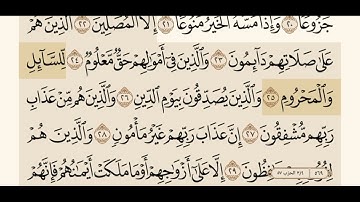 جَزُوعًا ٢٠ وَإِذَا مَسَّهُ الْخَيْرُ مَنُوعًا ٢١ إِلَّا الْمُصَلِّينَ ٢٢ الَّذِينَ هُمْ
عَلَىٰ صَلَاتِهِمْ دَائِمُونَ ٢٣ وَالَّذِينَ فِي أَمْوَالِهِمْ حَقٌّ مَّعْلُومٌ ٢٤ لِّلسَّائِلِ
وَالْمَحْرُومِ ٢٥ وَالَّذِينَ يُصَدِّقُونَ بِيَوْمِ الدِّينِ ٢٦ وَالَّذِينَ هُم مِّنْ عَذَابِ
رَبِّهِم مُّشْفِقُونَ ٢٧ إِنَّ عَذَابَ رَبِّهِمْ غَيْرُ مَأْمُونٍ ٢٨ وَالَّذِينَ هُمْ
لِفُرُوجِهِمْ حَافِظُونَ ٢٩ إِلَّا عَلَىٰ أَزْوَاجِهِمْ أَوْ مَا مَلَكَتْ أَيْمَانُهُمْ فَإِنَّهُمْ
٥٦٩ الحزب ٥٧